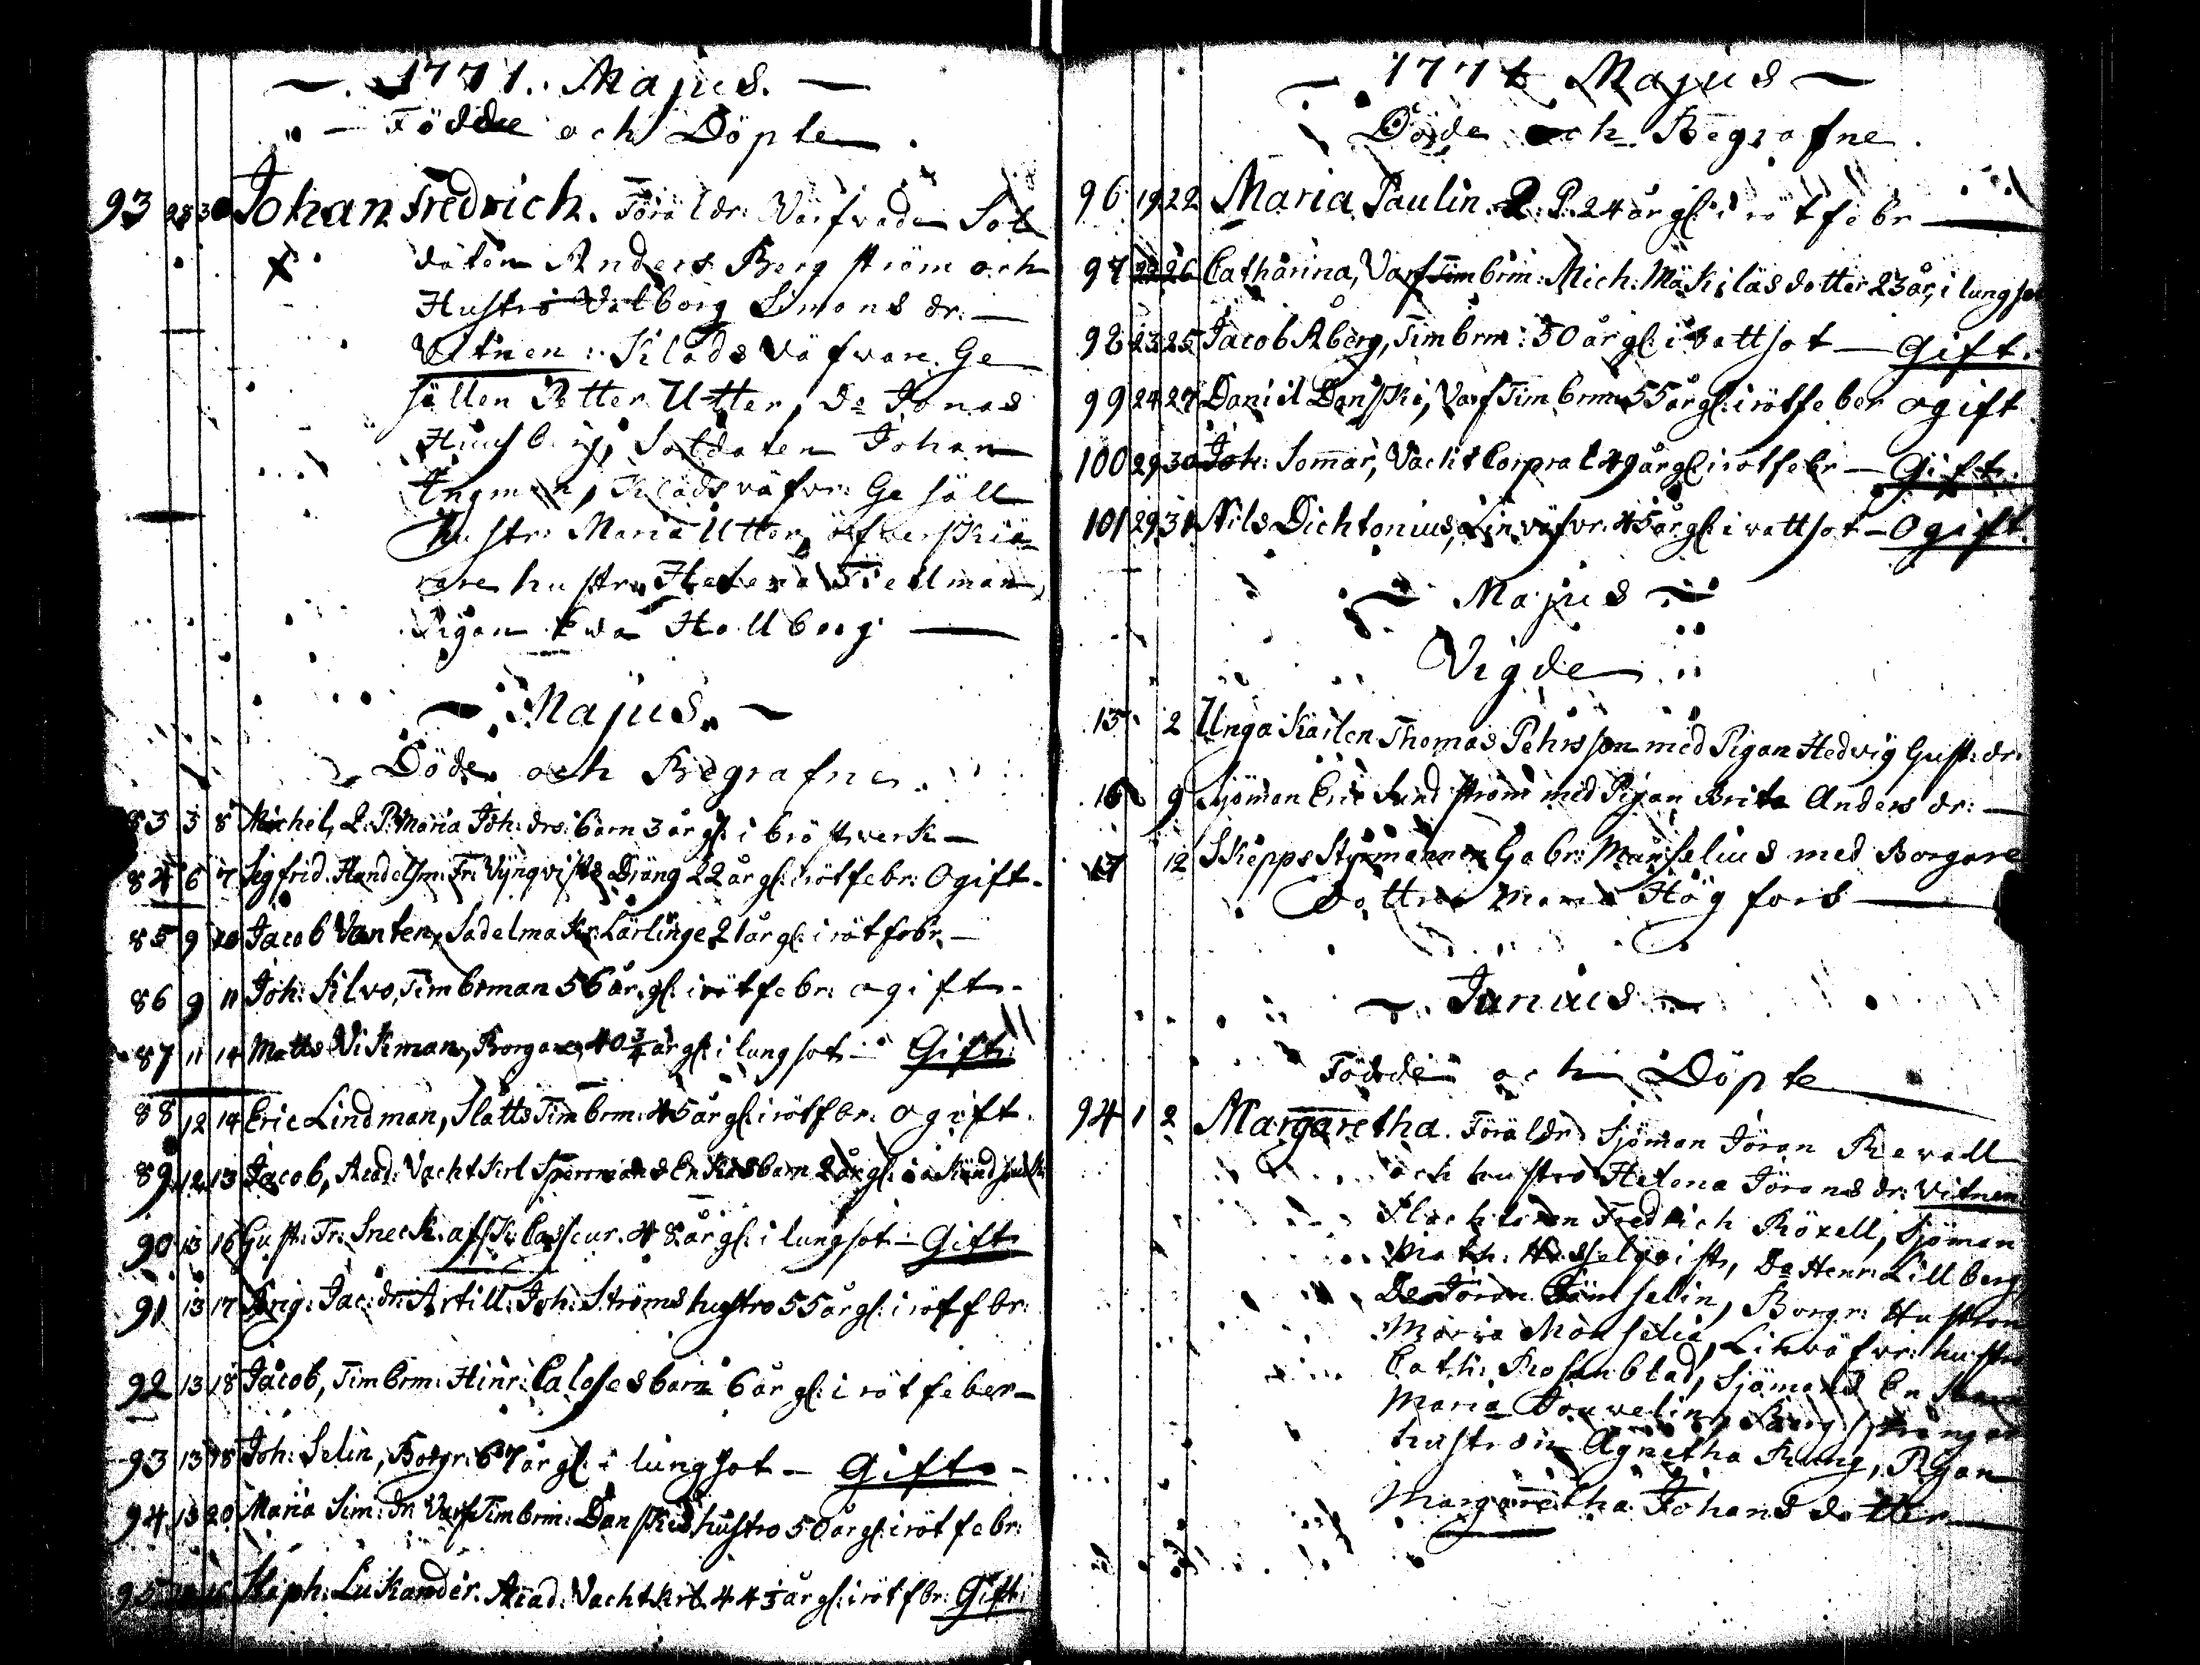 1771. Majus.
Födde och Döpte
93 28 30 Johan Fredrich. Föräldr: Värfvade Sol
daten Anders Bergström och
Hustro Valborg Simons dr:
Vitnen: Klädsväfvare Ge
sällen Petter Utter, Do Jonas
Soldaten Johan
Ingman, Klädsväfvr: Gesäll
hustr: Maria Utter, öfverskiä
rare hustru Helena Tiedman,
Pigan Eva Hallberg
Majus.
Döde och Begrafne
83 3 8 Michel, L: P: Maria Joh: drs: barn 3 år gl: i bröstverk
84 6 7 Sigfrid. Handelsm: Fr: Vynqvists Dräng 22 år gl: i rötfebr: Ogift.
85 9 10 Jacob Vanten, Sadelmak: Lärlinge 21 år gl: i rötfebr.
86 9 11 Joh: Silvo, Timberman 56 år gl: i rötfebr: ogift.
87 11 14 Matts Vikman, Borgare, 40 3/4 år gl: i lungsot Gift.
88 12 14 Eric Lindman, Slatts Timbrm: 45 år gl: i rötfbr: ogift.
89 12 13 Jacob, Acad: Vachtkrl Enkas barn 2 år gl: i
90 13 16 Gust: Fr: Sneck. afsk: Casseur. 48 år gl: i lungsot Gift
91 13 17 Brig: Jac: dr: Artill: Joh: Ströms hustro 55 år gl: i rötfbr:
92 13 18 Jacob, Timbrm: Hinr: barn 6 år gl: i rötfeber
93 13 18 Joh: Selin, Borgr: 67 år gl: i lungsot Gift
94 13 20 Maria Sim: dr Varf Timbrm: Danskis hustro 50 år gl: i rötfebr:
95 Staph: Lukander. Acad: Vachtkrl. 44 år gl: i rötfbr: Gift:
1771 Majus
Döde och Begrafne
96 19 22 Maria Paulin. L: P: 24 år gl: i rötfebr
97 22 26 Catharina, Varf Timbrm: Mich: Mäkiläs dotter 23 år, i lungsot
98 23 25 Jacob Åberg, Timbrm: 50 år gl: i vattsot Gift.
99 24 27 Daniel Danski, Varf Timbrm 55 år gl: i rötfeber ogift
100 29 30 Joh: Somar, Vacht Corpral 49 år gl: i rötfebr Gift.
101 29 31 Nils Dichtonius, Linväfvr. 45 år gl: i vattsot Ogift.
Majus
Vigde
15 2 Unga Karlen Thomas Pehrsson med Pigan Hedvig Gust: dr:
16 9 Sjöman Eric Sundström med Pigan Brita Anders dr:
17 12 Skepps Styrmannen Gabr: Månselius med Borgare
Dottren Maria Högfors
Junius
Födde och Döpte
94 1 2 Margaretha. Föräldr: Sjöman Jöran Revall
och hustro Helena Jörans dr: Vitnen
Fredrich Röxell, Sjöman
Math: Hesselqvist, Do Henr: Lillberg,
Do Jöran Borgr: Hustron
Maria Månselia, Linväfvr: hustro
Cath: Rosenblad, Sjömans Enkan
Maria
hustrun Agnetha Rung, Pigan
Margaretha Johans dotter